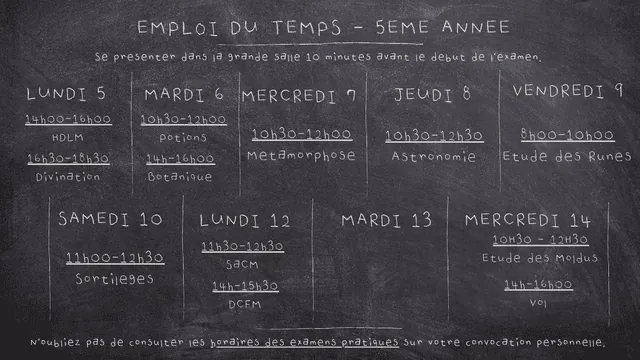 EMPLOI DU TEMPS - 5EME ANNEE
Se presenter dans la grande salle 10 minutes avant le debut de l'examen.
LUNDI 5
14h00-16h00
HDLM
16h30-18h30
Divination
MARDI 6
10h30-12h00
Potions
14h-16h00
Botanique
MERCREDI 7
10h30-12h00
Metamorphose
JEUDI 8
10h30-12h30
Astronomie
VENDREDI 9
8h00-10h00
Etude des Runes
SAMEDI 10
11h00-12h30
Sortileges
LUNDI 12
11h30-12h30
SACM
14h-15h30
DCFM
MARDI 13
MERCREDI 14
10H30 - 12H30
Etude des Moldus
14h-16h00
Vol
N'oubliez pas de consulter les horaires des examens pratiques sur votre convocation personnelle.